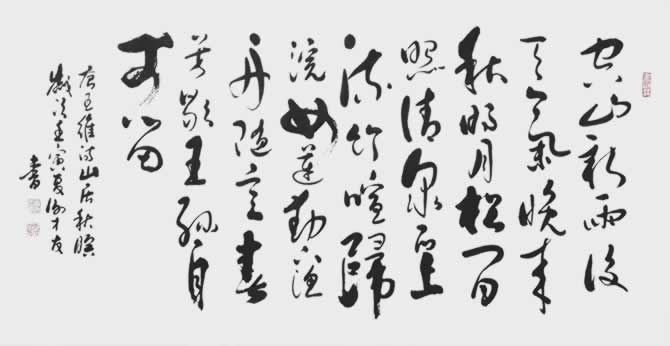 空山新雨後
天氣晚來
秋明月松間
照清泉石上
流竹喧歸
浣女蓮動漁
舟隨意春
芳歇王孫自
可留
唐王維詩山居秋暝
歲次壬寅夏才友
書